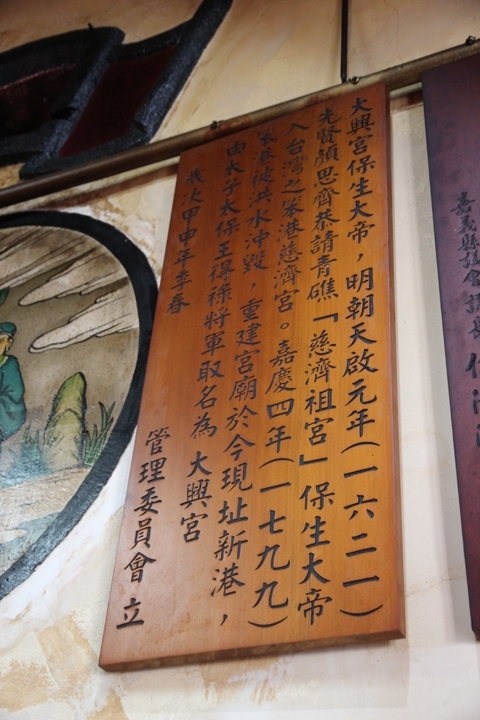 大興宮保生大帝，明朝天啟元年(一六二一)
先賢顏思齊恭請青礁「慈濟祖宮」保生大帝
入台灣之笨港慈濟宮。嘉慶四年(一七九九)
笨港被洪水沖毀，重建宮廟於今現址新港，
由太子太保王得祿將軍取名為 大興宮
歲次甲申年季春
管理委員會 立
嘉義縣議會議長